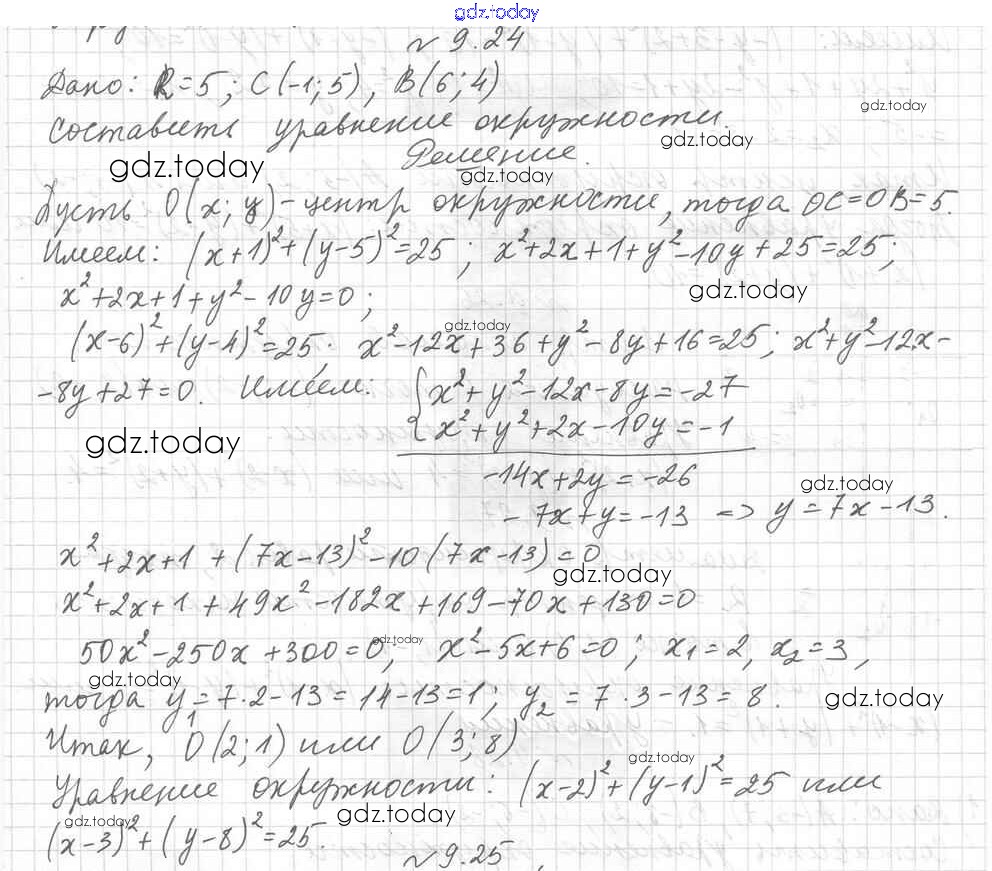 gdz.today
№ 9.24
Дано: R=5; C(-1;5), B(6;4)
gdz.today
составить уравнение окружности.
gdz.today
Решение.
gdz.today
gdz.today
Пусть O(x; y) - центр окружности, тогда OC=OB=5.
Имеем: (x+1)²+(y-5)²=25; x²+2x+1+y²-10y+25=25;
x²+2x+1+y²-10y=0;
gdz.today
gdz.today
(x-6)²+(y-4)²=25. x²-12x+36+y²-8y+16=25; x²+y²-12x-
-8y+27=0. Имеем: { x²+y²-12x-8y=-27
x²+y²+2x-10y=-1
gdz.today
-14x+2y=-26
gdz.today
-7x+y=-13 => y=7x-13.
x²+2x+1+(7x-13)²-10(7x-13)=0
gdz.today
x²+2x+1+49x²-182x+169-70x+130=0
50x²-250x+300=0, x²-5x+6=0; x₁=2, x₂=3,
gdz.today
gdz.today
тогда y₁=7·2-13=14-13=1; y₂=7·3-13=8.
gdz.today
Итак, O(2;1) или O(3;8)
gdz.today
Уравнение окружности: (x-2)²+(y-1)²=25 или
gdz.today
gdz.today
(x-3)²+(y-8)²=25.
№ 9.25